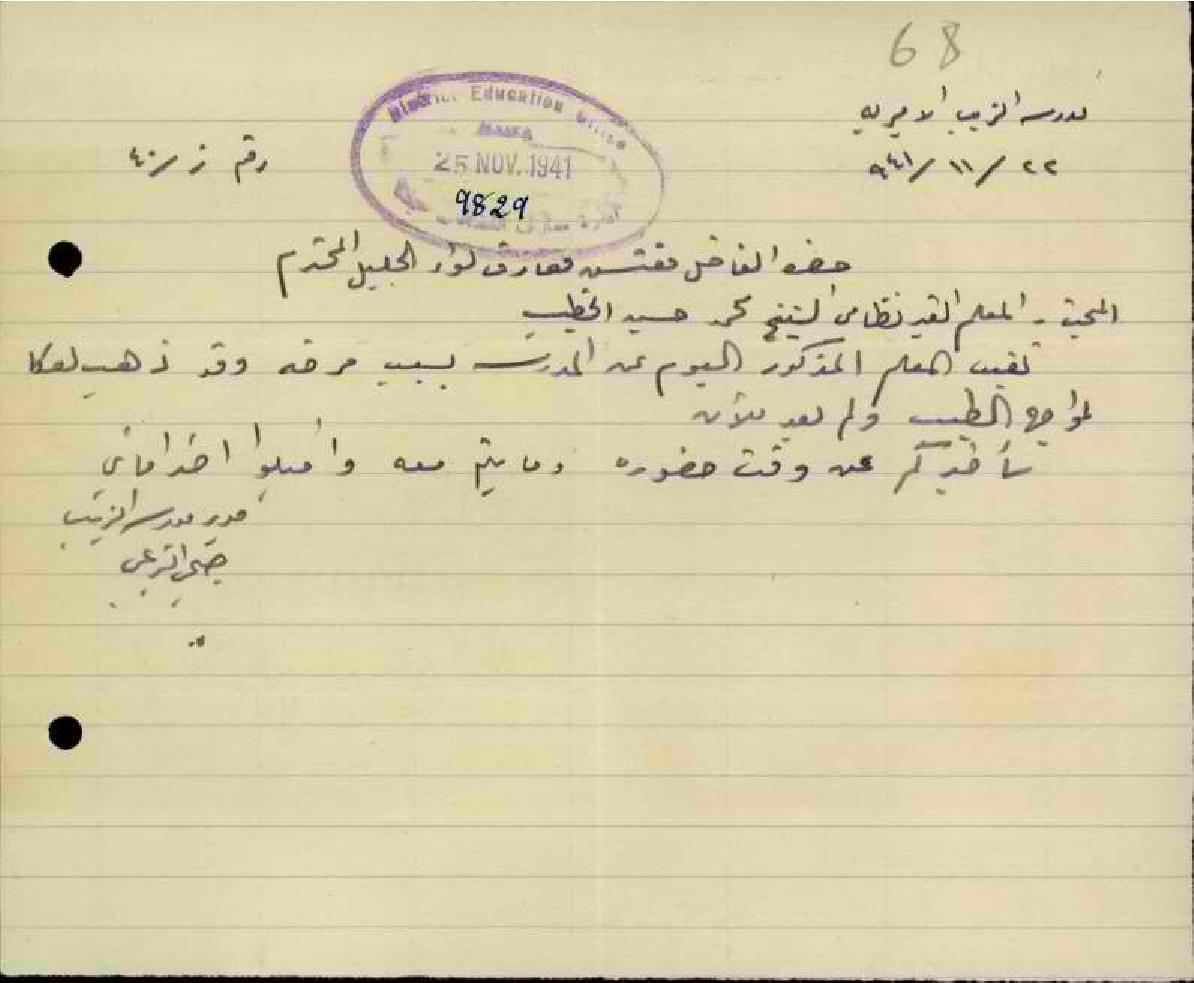 68
مدرسه الزيب الاميريه
٢٢ / ١١ / ٩٤١
رقم ز / ٤٠
District Education Office
HAIFA
25 NOV. 1941
9829
حضرة الفاضل مفتش معارف لواء الجليل المحترم
المبحث - المعلم الغير نظامي الشيخ محمد حسين الخطيب
تغيب المعلم المذكور اليوم عن المدرسه بسبب مرضه وقد ذهب لعكا
لمراجعة الطبيب ولم يعد للآن
سأخبركم عن وقت حضوره وما يتم معه واقبلوا احتراماتي
مدير مدرسة الزيب